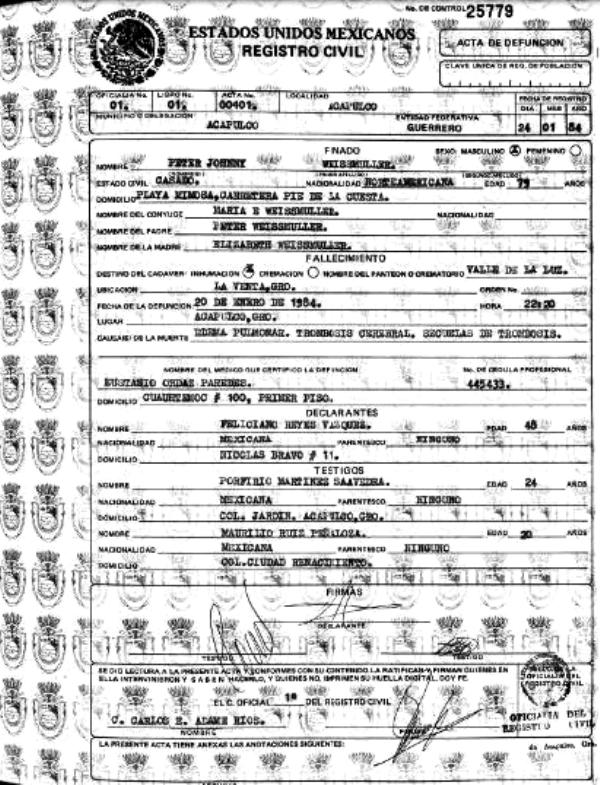 No. DE CONTROL 25779
ESTADOS UNIDOS MEXICANOS
REGISTRO CIVIL
ACTA DE DEFUNCION
CLAVE UNICA DE REG. DE POBLACION
OFICIALIA No. LIBRO No. ACTA No. LOCALIDAD
01. 01. 00401. ACAPULCO
FECHA DE REGISTRO
DIA MES AÑO
MUNICIPIO O DELEGACION ENTIDAD FEDERATIVA
ACAPULCO GUERRERO 24 01 84
FINADO SEXO: MASCULINO FEMENINO
NOMBRE PETER JOHNNY WEISSMULLER.
ESTADO CIVIL CASADO. NACIONALIDAD NORTEAMERICANA EDAD 79 AÑOS
DOMICILIO PLAYA MIMOSA, CARRETERA PIE DE LA CUESTA.
NOMBRE DEL CONYUGE MARIA E WEISSMULLER. NACIONALIDAD
NOMBRE DEL PADRE PETER WEISSMULLER.
NOMBRE DE LA MADRE ELIZABETH WEISSMULLER.
FALLECIMIENTO
DESTINO DEL CADAVER: INHUMACION CREMACION NOMBRE DEL PANTEON O CREMATORIO VALLE DE LA LUZ.
UBICACION LA VENTA, GRO. ORDEN No.
FECHA DE LA DEFUNCION 20 DE ENERO DE 1984. HORA 22:20
LUGAR ACAPULCO, GRO.
CAUSA(S) DE LA MUERTE EDEMA PULMONAR. TROMBOSIS CEREBRAL. SECUELAS DE TROMBOSIS.
NOMBRE DEL MEDICO QUE CERTIFICO LA DEFUNCION No. DE CEDULA PROFESIONAL
EUSTASIO ORDAZ PAREDES. 445433.
DOMICILIO CUAUHTEMOC # 100, PRIMER PISO.
DECLARANTES
NOMBRE FELICIANO REYES VAZQUEZ. EDAD 48 AÑOS
NACIONALIDAD MEXICANA PARENTESCO NINGUNO
DOMICILIO NICOLAS BRAVO # 11.
TESTIGOS
NOMBRE PORFIRIO MARTINEZ SAAVEDRA. EDAD 24 AÑOS
NACIONALIDAD MEXICANA PARENTESCO NINGUNO
DOMICILIO COL. JARDIN. ACAPULCO, GRO.
NOMBRE MAURILIO RUIZ PEÑALOZA. EDAD 20 AÑOS
NACIONALIDAD MEXICANA PARENTESCO NINGUNO
DOMICILIO COL. CIUDAD RENACIMIENTO.
FIRMAS
DECLARANTE
TESTIGO TESTIGO
SE DIO LECTURA A LA PRESENTE ACTA Y CONFORMES CON SU CONTENIDO LA RATIFICAN Y FIRMAN QUIENES EN
ELLA INTERVINIERON Y SABEN HACERLO, Y QUIENES NO, IMPRIMEN SU HUELLA DIGITAL. DOY FE.
EL C. OFICIAL 1º DEL REGISTRO CIVIL
C. CARLOS E. ADAME RIOS.
NOMBRE
OFICIALIA DEL
REGISTRO CIVIL
de Acapulco, Gro.
LA PRESENTE ACTA TIENE ANEXAS LAS ANOTACIONES SIGUIENTES: